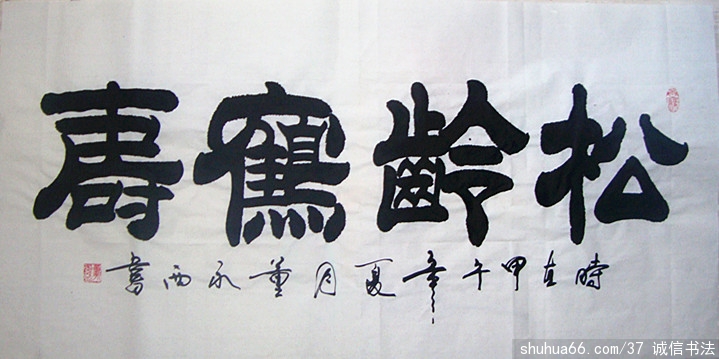 松齡鶴壽
時在甲午年夏月董永西書
shuhua66.com/37 诚信书法